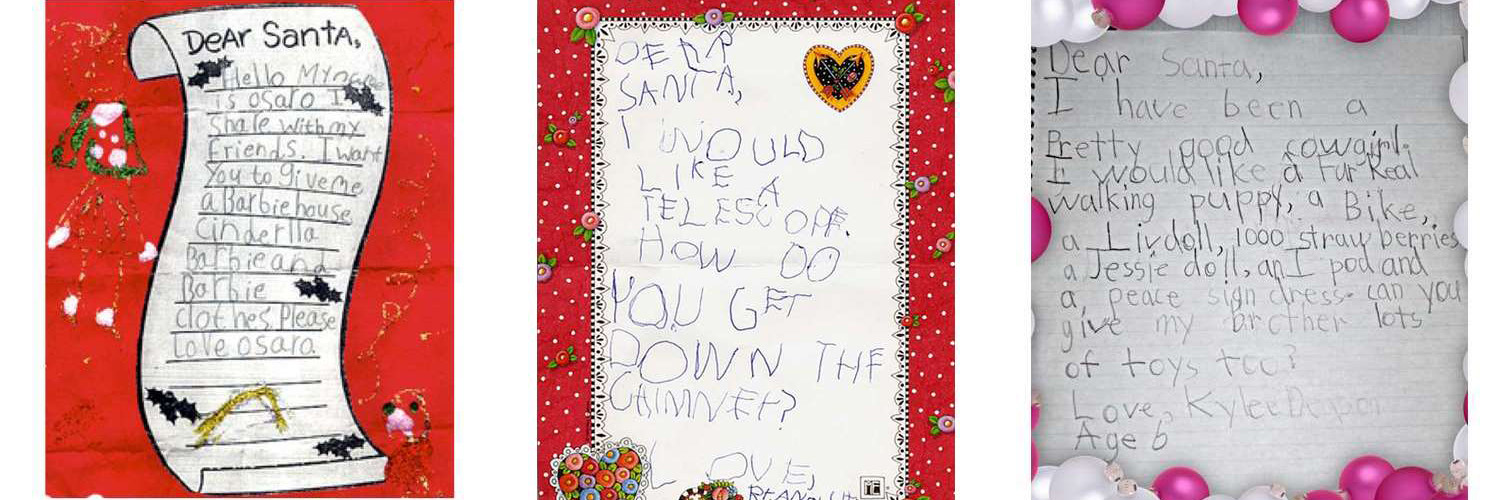 Dear Santa,
Hello My name
is osaro I
Share with my
friends. I want
You to give me
a Barbie house
Cinderlla
Barbie and
Barbie
clothes. Please
Love osaro
DEAR
SANTA,
I WOULD
LIKE A
TELESCOPE.
HOW DO
YOU GET
DOWN THE
CHIMNEY?
LOVE,
Dear Santa,
I have been a
Pretty good cowgirl.
I would like a Fur Real
walking puppy, a Bike,
a Livdoll, 1000 strawberries
a Jessie doll, an I pod and
a peace sign dress. can you
give my brother lots
of toys too?
Love, Kylee
Age 6